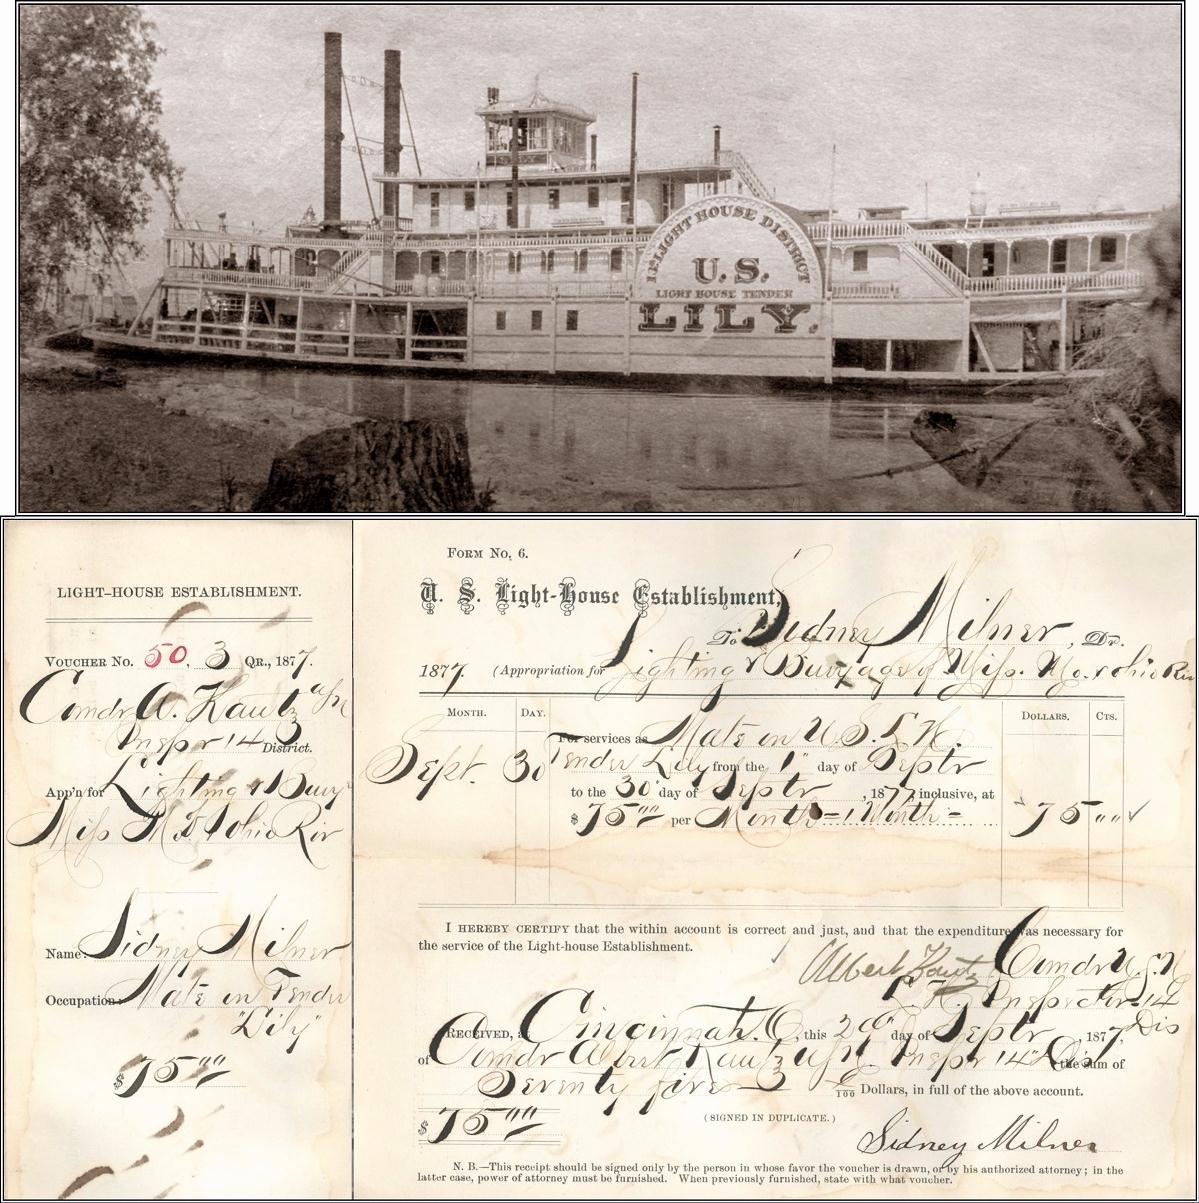 15. LIGHT HOUSE DISTRICT
U.S.
LIGHT HOUSE TENDER
LILY.
LIGHT-HOUSE ESTABLISHMENT.
VOUCHER No. 50, 3 QR., 1877.
Comdr A. Kautz USN
Inspr 14 District.
App'n for Lighting & Buoy
Miss Mo & Ohio Riv
Name: Sidney Milner
Occupation: Mate on Tender
"Lily"
$75""
FORM No. 6.
U. S. Light-House Establishment,
To Sydney Milner, Dr.
1877. (Appropriation for Lighting & Buoyage of Miss. Mo. & Ohio Riv
MONTH. DAY. DOLLARS. CTS.
For services as Mate on U.S.L.H.
Sept. 30 Tender Lily from the 1" day of Septr
to the 30" day of Septr, 1877, inclusive, at
$75"" per Month = 1 Month = 75 ""
I HEREBY CERTIFY that the within account is correct and just, and that the expenditure was necessary for
the service of the Light-house Establishment.
Albert Kautz Comdr U.S.N
L. H. Inspector 14
Dis
RECEIVED, at Cincinnati. O, this 29" day of Septr, 1877,
of Comdr Albert Kautz USN Inspr 14" Dis the sum of
Seventy five /100 Dollars, in full of the above account.
(SIGNED IN DUPLICATE.)
$75""
Sidney Milner
N. B.—This receipt should be signed only by the person in whose favor the voucher is drawn, or by his authorized attorney; in the
latter case, power of attorney must be furnished. When previously furnished, state with what voucher.